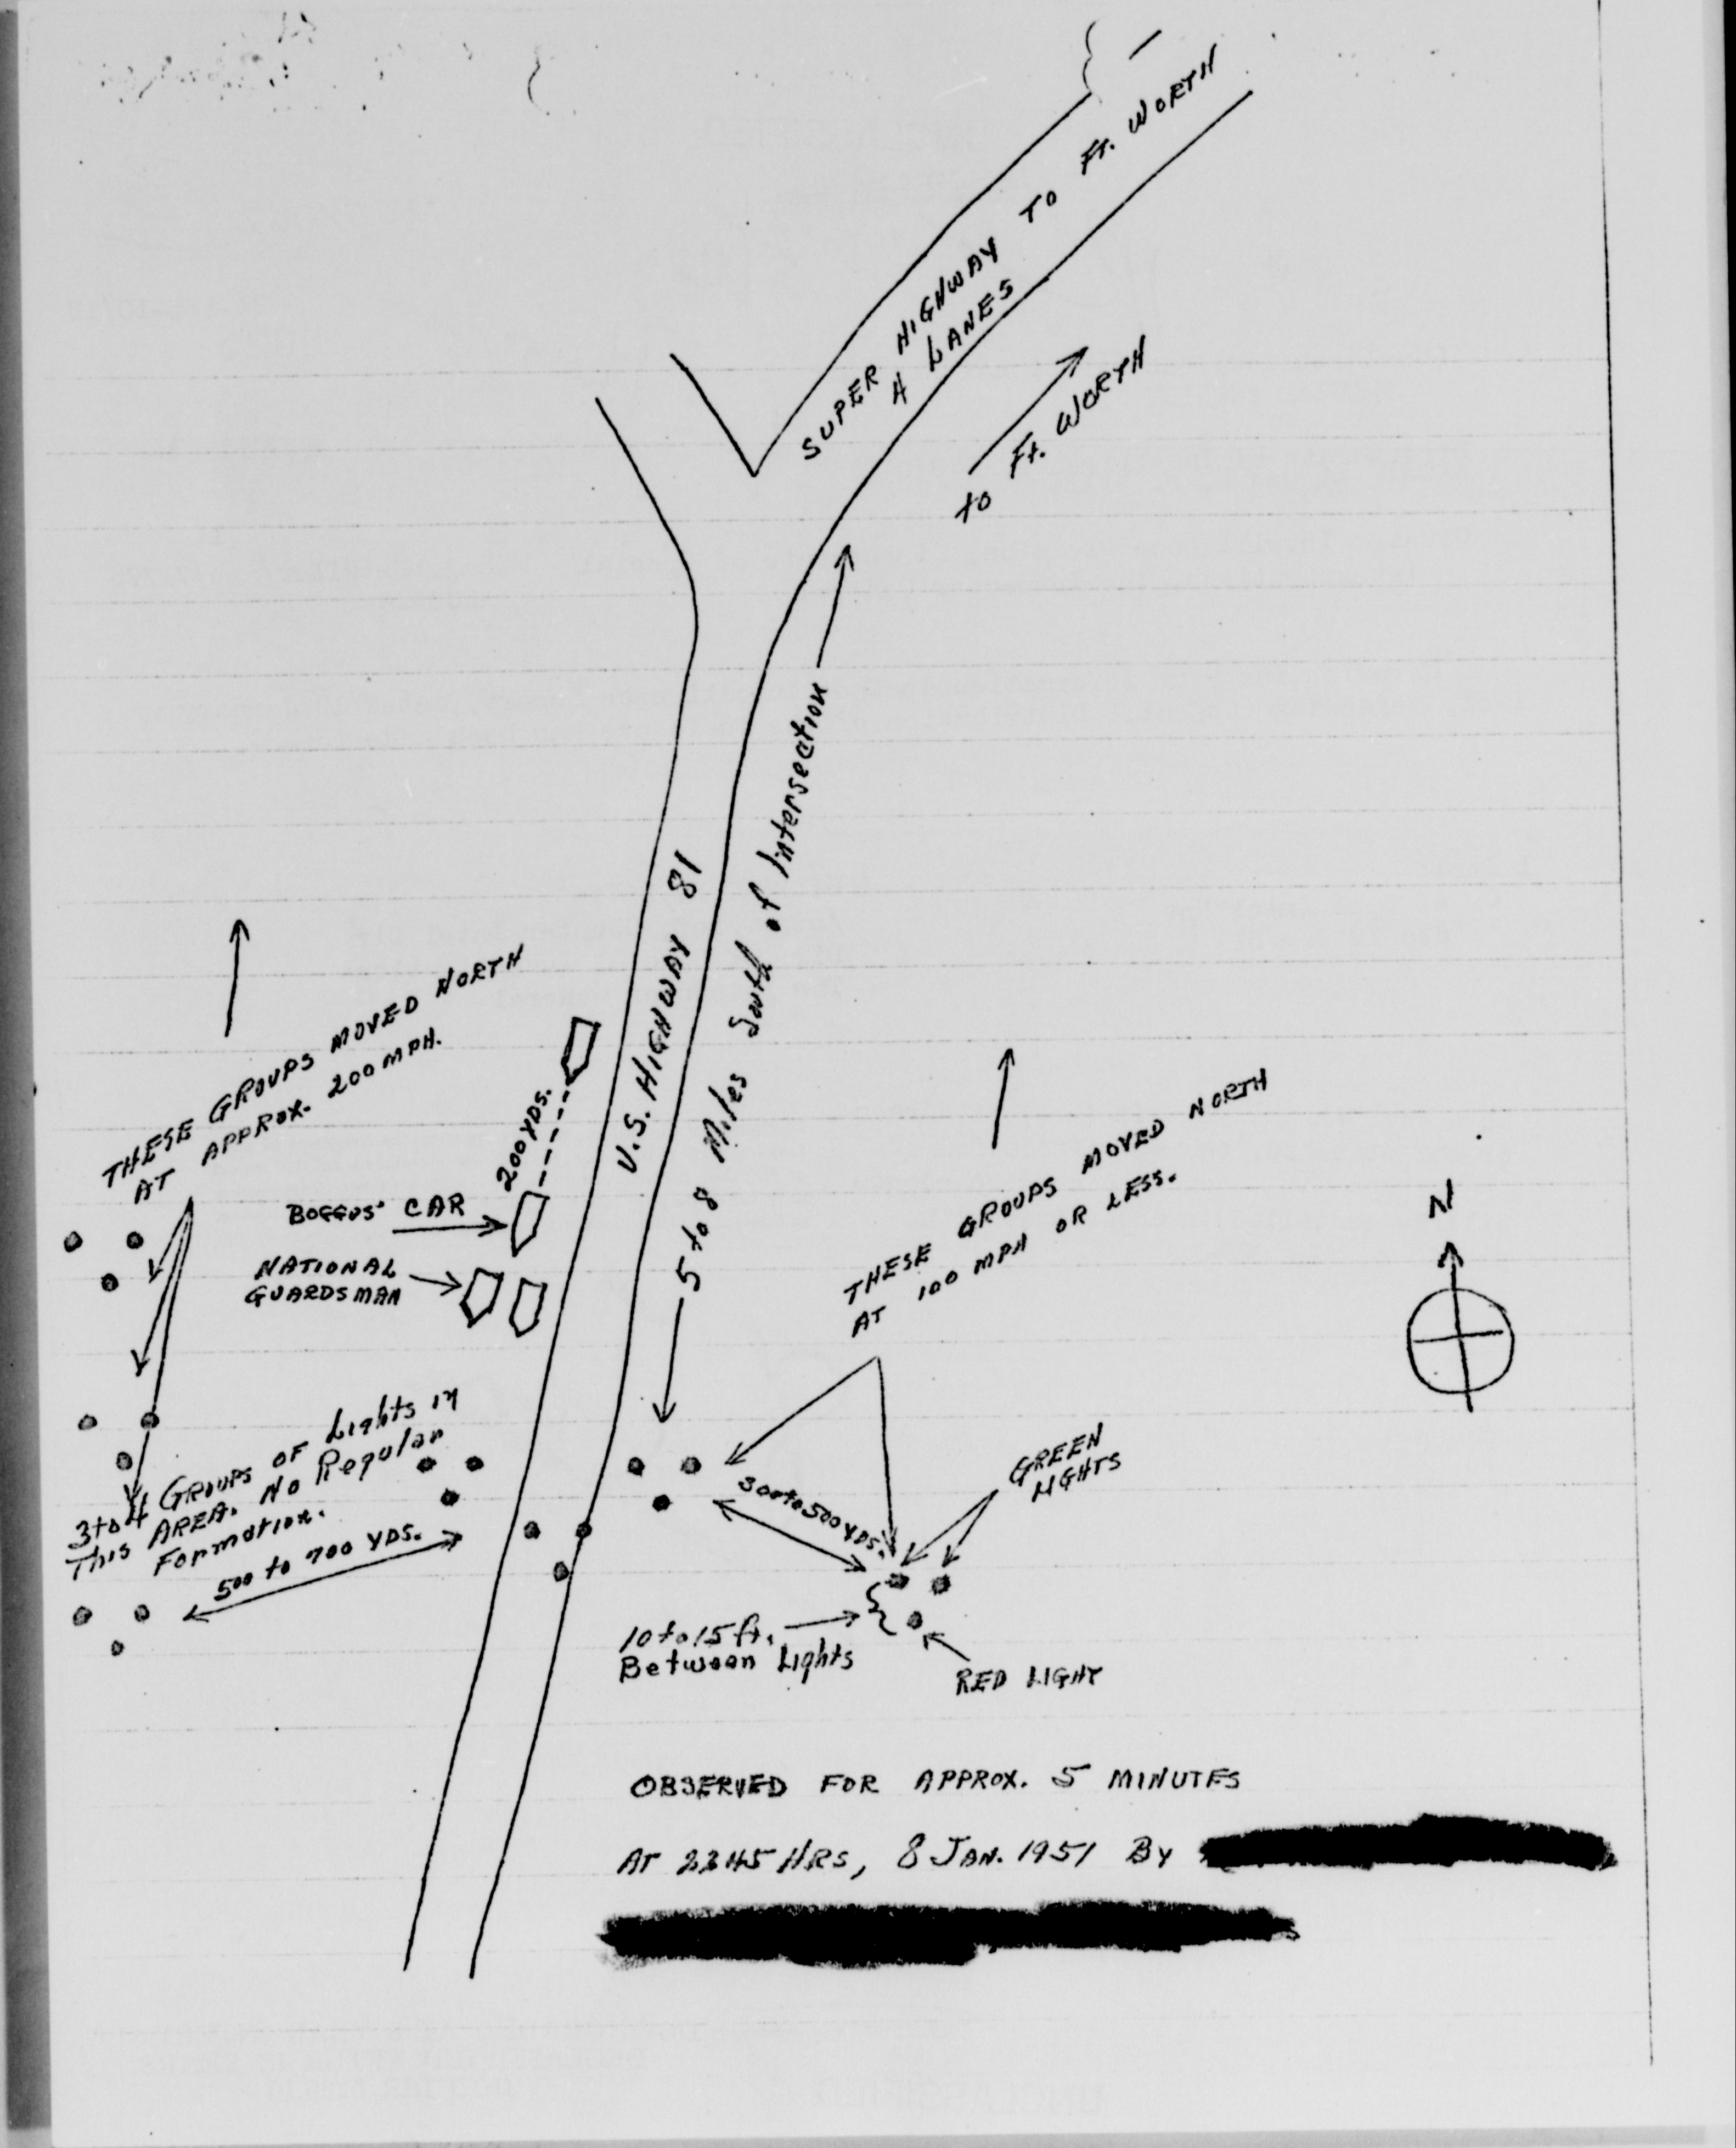 SUPER HIGHWAY TO Ft. WORTH
4 LANES
to Ft. WORTH
5 to 8 Miles South of Intersection
U.S. HIGHWAY 81
THESE GROUPS MOVED NORTH
AT APPROX. 200 MPH.
200 YDS.
BOGGUS' CAR
NATIONAL
GUARDSMAN
THESE GROUPS MOVED NORTH
AT 100 MPH OR LESS.
N
3 to 4 GROUPS OF Lights in
This AREA. No Regular
Formation.
500 to 700 YDS.
300 to 500 YDS.
GREEN
LIGHTS
10 to 15 ft.
Between Lights
RED LIGHT
OBSERVED FOR APPROX. 5 MINUTES
AT HRS, 8 JAN. 1951 BY